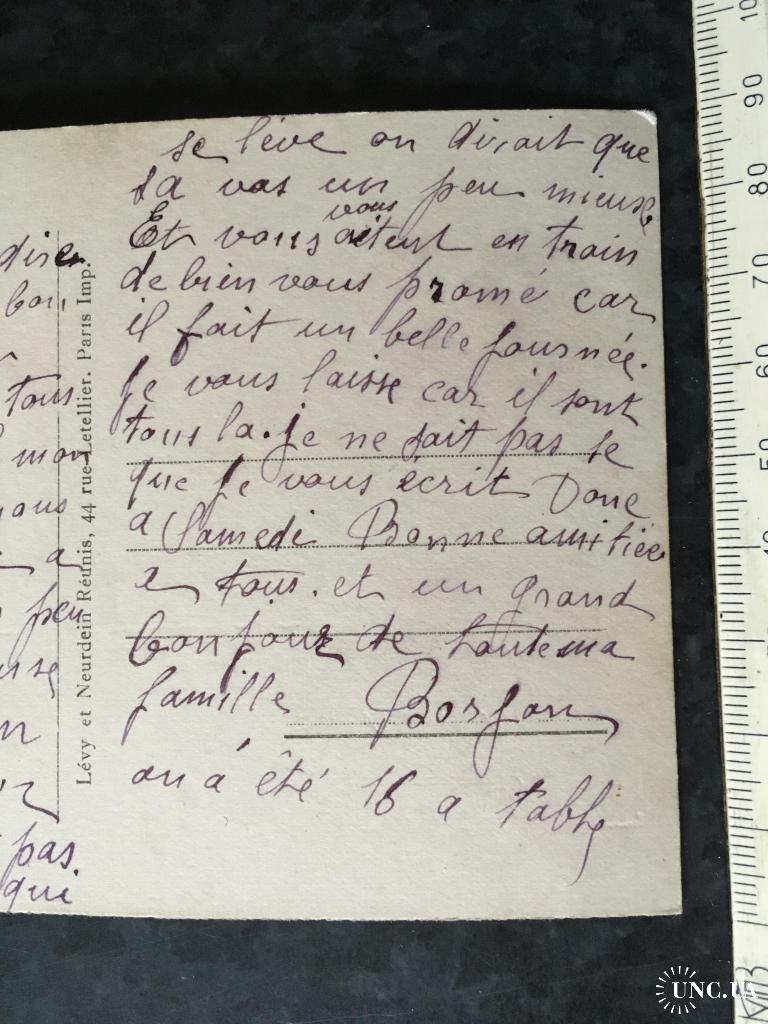 se lève on dirait que
sa vas un peu mieuse
vous
Et vous étent en train
de bien vous promé car
il fait un belle journée.
Je vous laisse car il sont
tous la. je ne sait pas se
que je vous écrit Donc
a Samedi Bonne amitiée
a tous. et un grand
bonjour de toute ma
famille
on a été 16 a table
dire
bon
tous
mon
a
peu
pas
qui
Lévy et Neurdein Réunis, 44 rue Letellier. Paris Imp.
100
90
80
70
60
50
UNC.UA